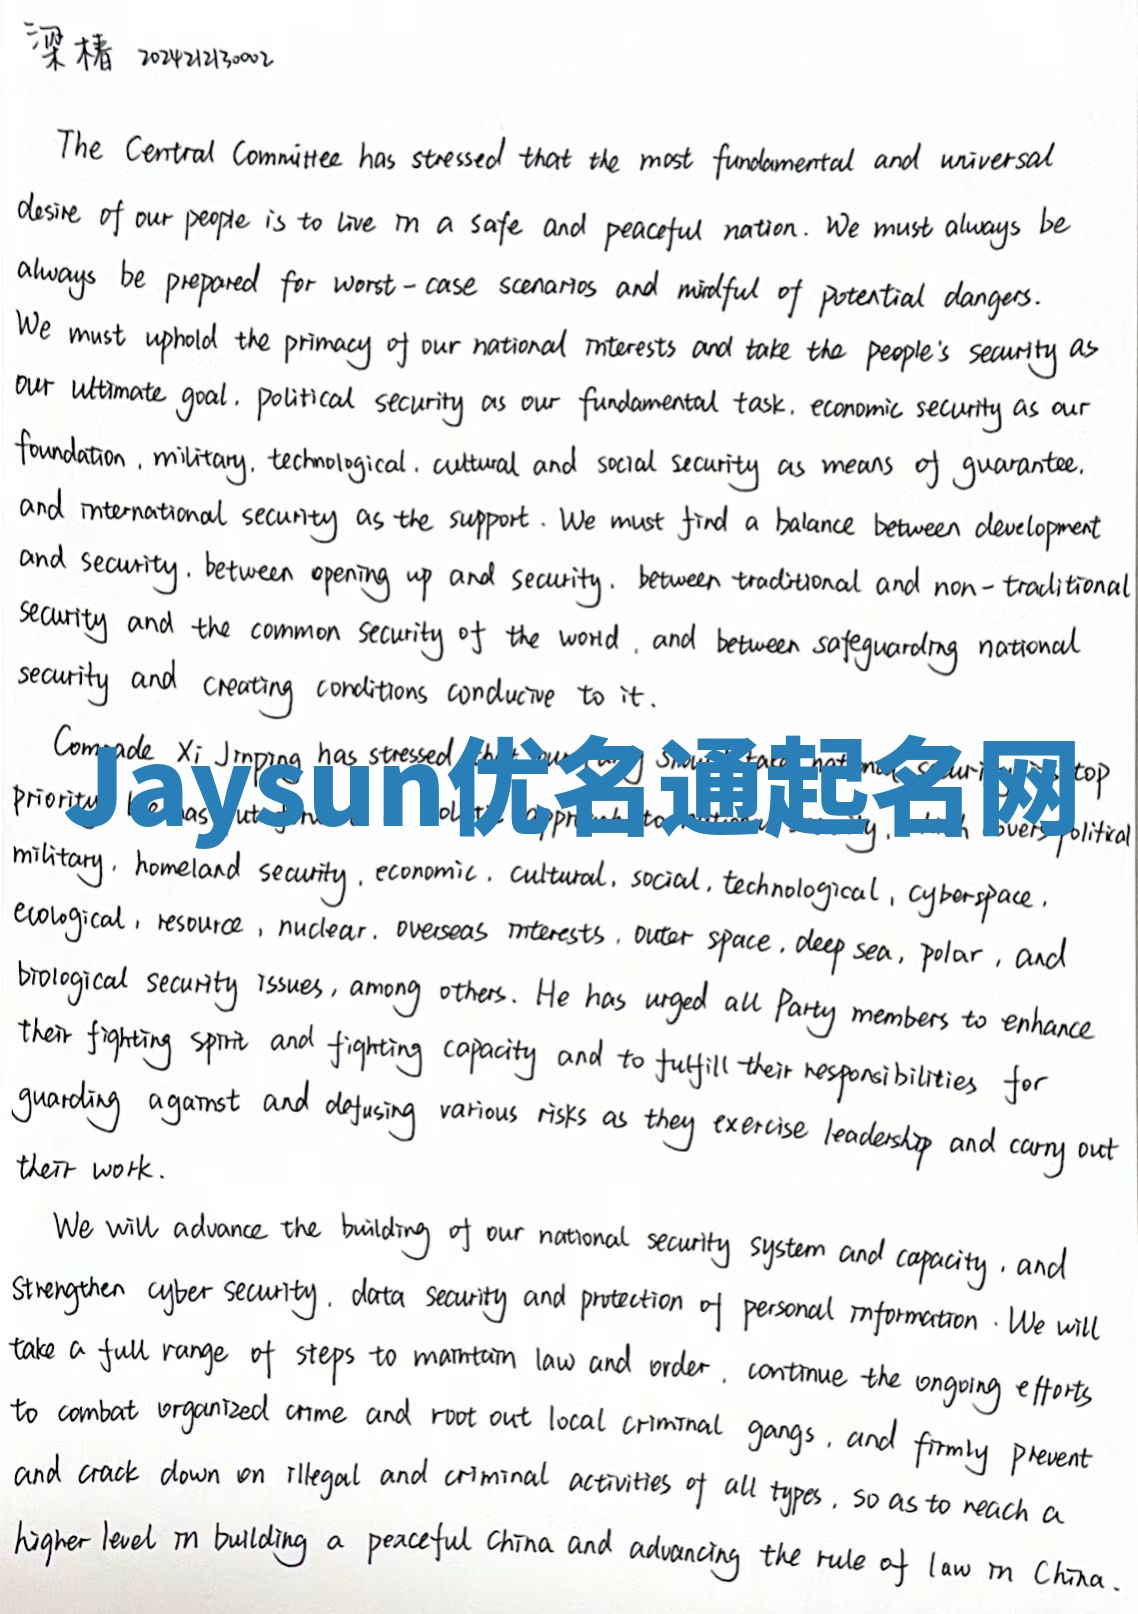 梁椿 2024212130002
The Central Committee has stressed that the most fundamental and universal
desire of our people is to live in a safe and peaceful nation. We must always be
always be prepared for worst-case scenarios and mindful of potential dangers.
We must uphold the primacy of our national interests and take the people's security as
our ultimate goal, political security as our fundamental task, economic security as our
foundation, military, technological, cultural and social security as means of guarantee,
and international security as the support. We must find a balance between development
and security, between opening up and security, between traditional and non-traditional
security and the common security of the world, and between safeguarding national
security and creating conditions conducive to it.
Comrade Xi Jinping has stressed that our should take national security top
Jaysun优名通起名网
priority. He has to covers political
military, homeland security, economic, cultural, social, technological, cyberspace,
ecological, resource, nuclear, overseas interests, outer space, deep sea, polar, and
biological security issues, among others. He has urged all Party members to enhance
their fighting spirit and fighting capacity and to fulfill their responsibilities for
guarding against and defusing various risks as they exercise leadership and carry out
their work.
We will advance the building of our national security system and capacity, and
strengthen cyber security, data security and protection of personal information. We will
take a full range of steps to maintain law and order, continue the ongoing efforts
to combat organized crime and root out local criminal gangs, and firmly prevent
and crack down on illegal and criminal activities of all types, so as to reach a
higher level in building a peaceful China and advancing the rule of law in China.